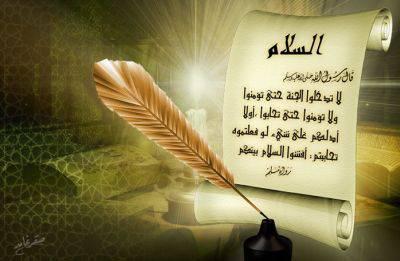 السلام
قال رسول الله صلى الله عليه وسلم
لا تدخلوا الجنة حتى تؤمنوا
ولا تؤمنوا حتى تحابوا، أولا
أدلكم على شيء لو فعلتموه
تحاببتم: أفشوا السلام بينكم
رواه مسلم